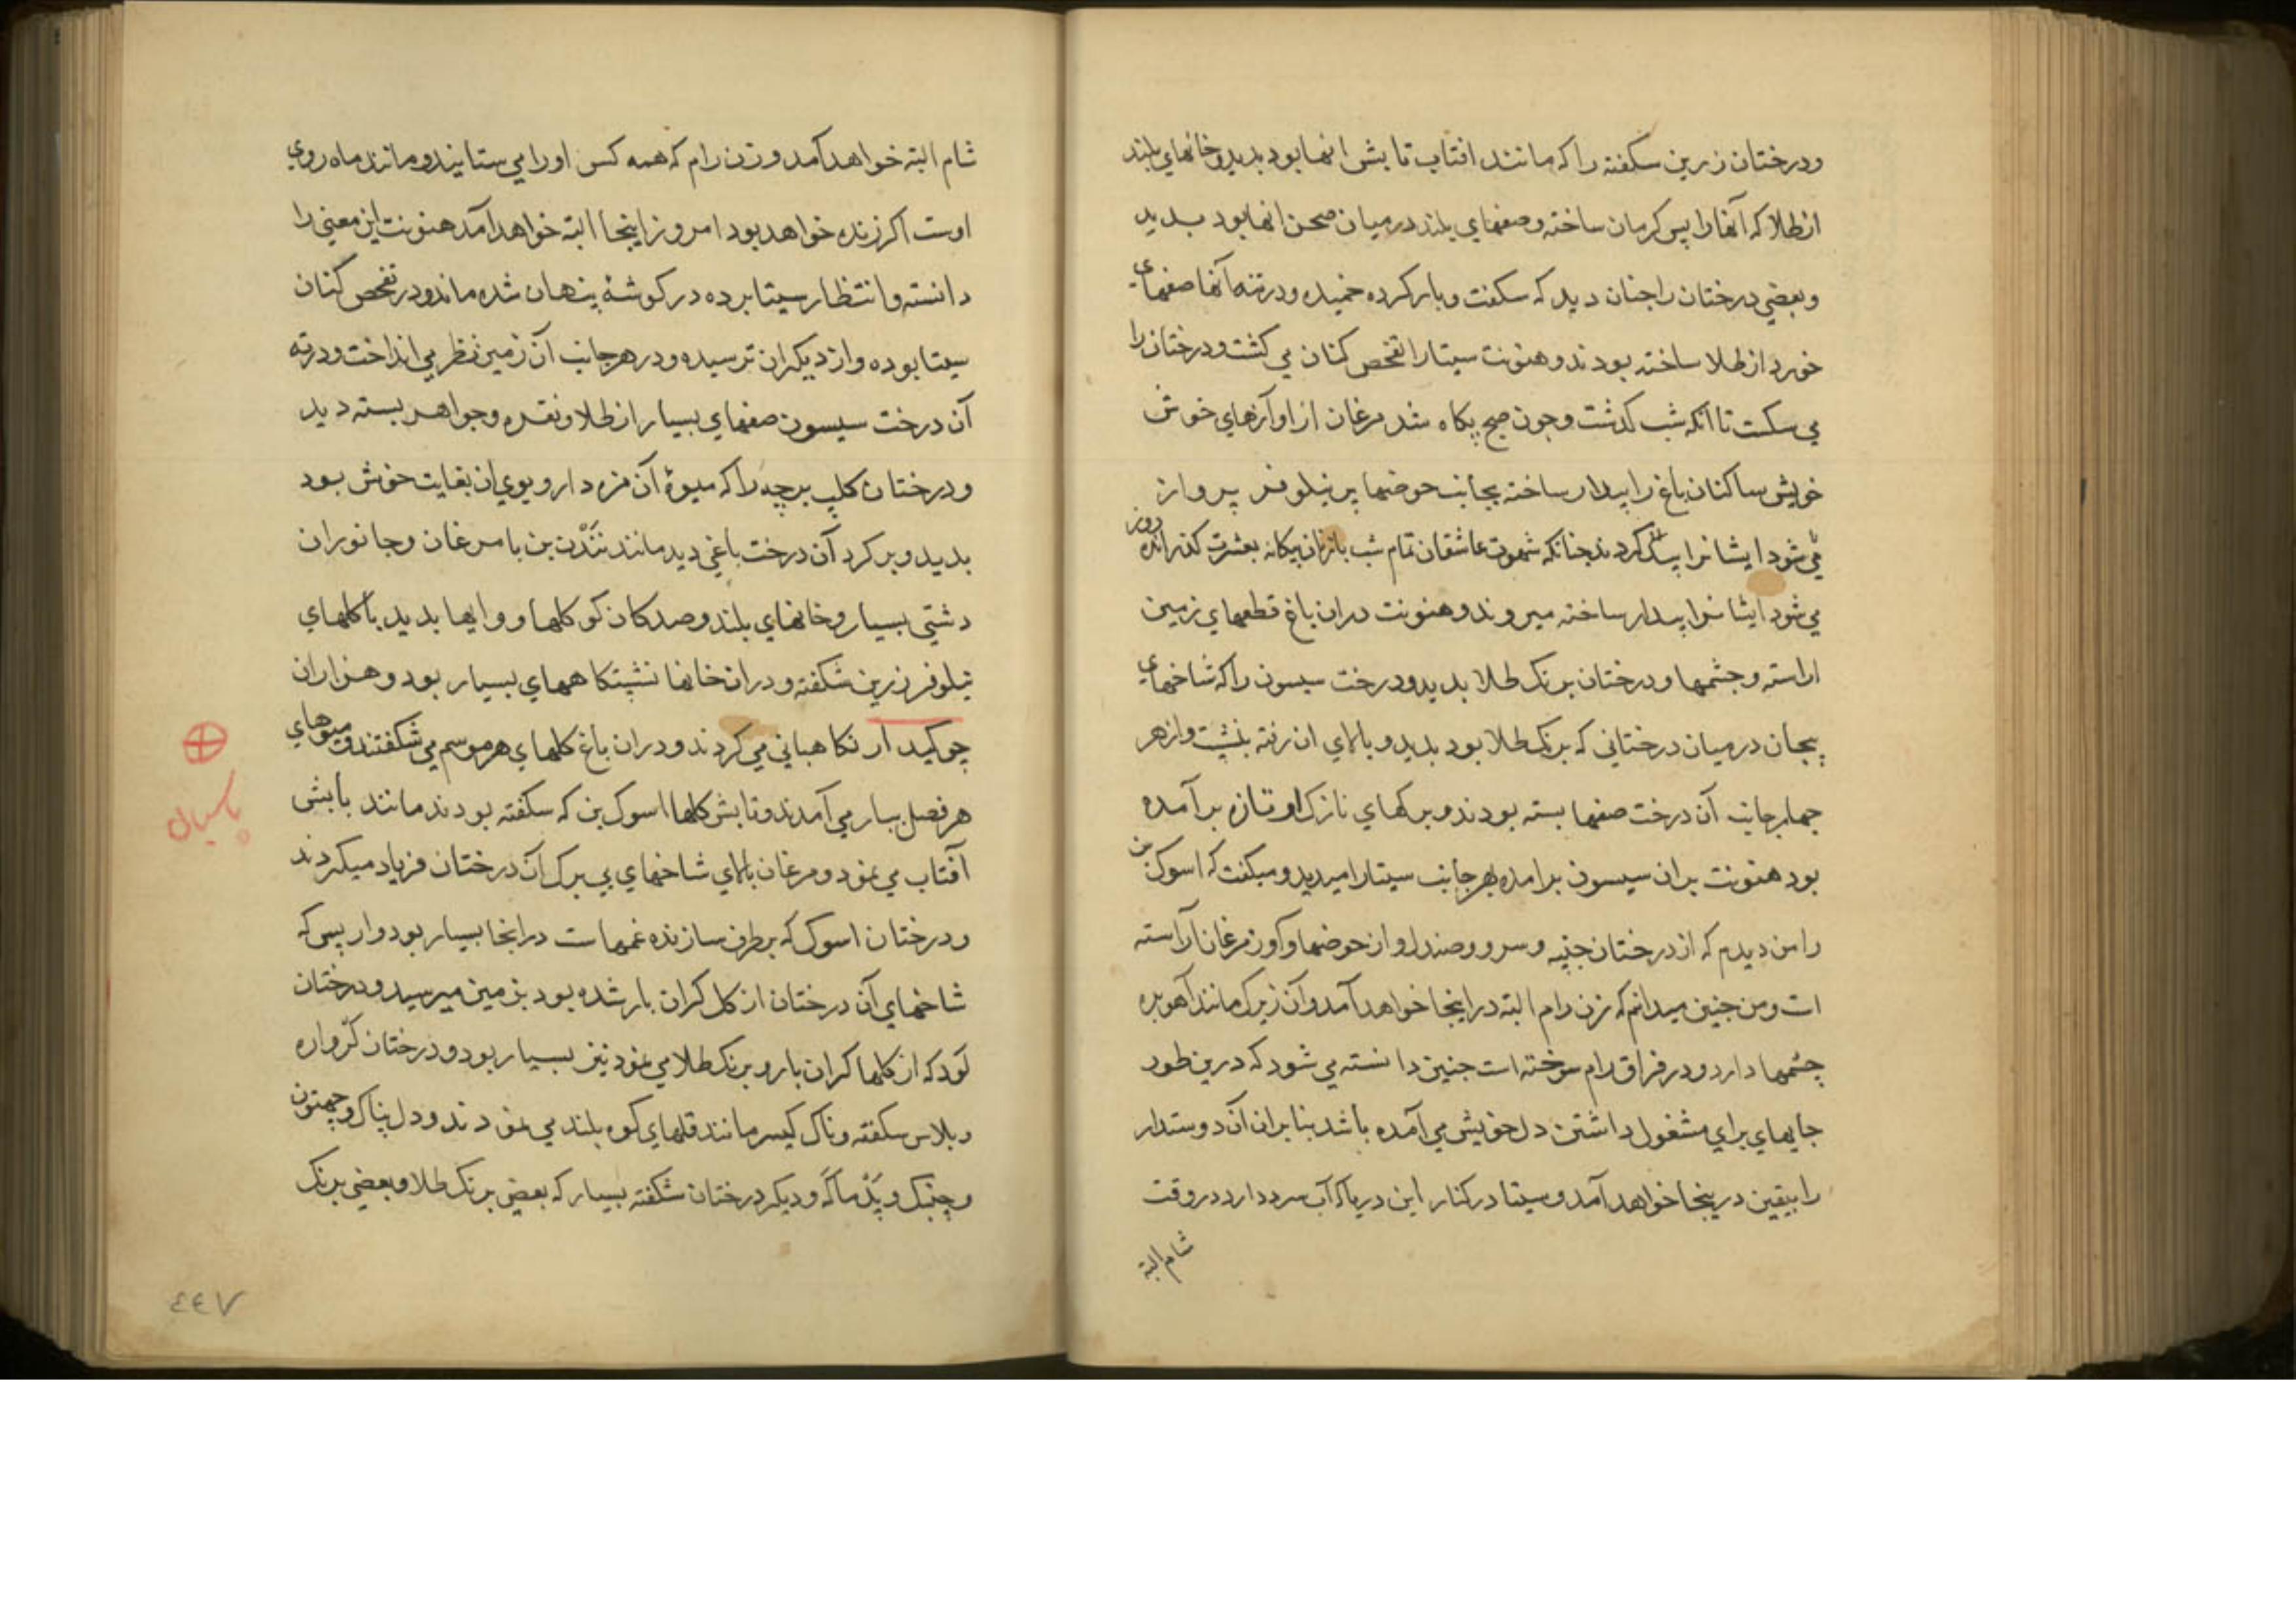 ودرختان زرین سکفته را که مانند افتاب تابش انها بود بدید وخانهای بلند
ازطلا که آنها را پس کرمان ساخته وصفهای بلند درمیان صحن انها بود بدید
وبعضی درختان را جنان دید که سکفت وبار کرده خمیده ودرتنه آنها صفهای
خورد ازطلا ساخته بودند وهنونت سیتا را تفحص کنان می کشت ودرختان را
می سکست تا آنکه شب کذشت وجون صبح پکاه شد مرغان از اوازهای خوش
خویش ساکنان باغ را بیدار ساخته بجانب حوضها پر نیلوفر پرواز
می شود ایشانرا کردند جنانکه شهوت عاشقان تمام شب بازنان بیکانه بعشرت کذرانده روز
می شود ایشانرا بیدار ساخته میروند وهنونت دران باغ قطعهای زمین
اراسته وجشمها ودرختان برنک طلا بدید ودرخت سیسون را که شاخهای
پیجان درمیان درختانی که برنک طلا بود بدید وبالای ان رفته بنشت وازهر
جهار جانب آن درخت صفها بسته بودند وبرکهای نازک او تازه برآمده
بود هنونت بران سیسون برامده بهرجانب سیتا را میدید ومیکفت که اسوک بن
را من دیدم که از درختان جنپه وسرو وصندل واز حوضها وآواز مرغان آراسته
ات ومن جنین میدانم که زن رام البته دراینجا خواهد آمد وآن زیرک مانند آهوبره
چشمها دارد ودر فراق رام سوخته است جنین دانسته می شود که درین طور
جایهای برای مشغول داشتن دل خویش می آمده باشد بنابران آن دوستدار
را بیقین درینجا خواهد آمد وسیتا درکنار این دریا که آب سرد دارد دروقت
شام البته
شام البته خواهد آمد وزن رام که همه کس اورا می ستایند ومانند ماه روی
اوست اکر زنده خواهد بود امروز اینجا البته خواهد آمد هنونت این معنی را
دانسته وانتظار سیتا برده درکوشۀ پنهان شده ماند ودرتفحص کنان
سیتا بوده واز دیکران ترسیده ودرهرجانب آن زمین نظر می انداخت ودرته
آن درخت سیسون صفهای بسیار ازطلا ونقره وجواهر بسته دید
ودرختان کلپ برچه را که میوۀ آن مزه دار وبوی ان بغایت خوش بود
بدید وبرکرد آن درخت باغی دید مانند نندن بن با مرغان وجانوران
دشتی بسیار وخانهای بلند وصدکان کوکلها ووایها بدید با کلهای
نیلوفر زرین شکفته ودران خانها نشپتکاههای بسیار بود وهزاران
چوکیدار نکاهبانی می کردند ودران باغ کلهای هرموسم می شکفتند ومیوهای
هر فصل ببار می آمدند وتابش کلها اسوک بن که سکفته بودند مانند تابش
آفتاب می نمود ومرغان بالای شاخهای بی برک آن درختان فریاد میکردند
ودرختان اسوک که برطرف سازنده غمهاست درانجا بسیار بود واز بس که
شاخهای آن درختان از کل کران بار شده بود بزمین میرسید ودرختان
کود که از کلها کران بار وبرنک طلا می نمود نیز بسیار بود ودرختان کرواره
وبلاس سکفته وناک کیسر مانند قلهای کوه بلند می نمودند ودل پناک وچهتون
وچنپک وپدماکه ودیکر درختان شکفته بسیار که بعضی برنک طلا وبعضی برنک
٤٤٧